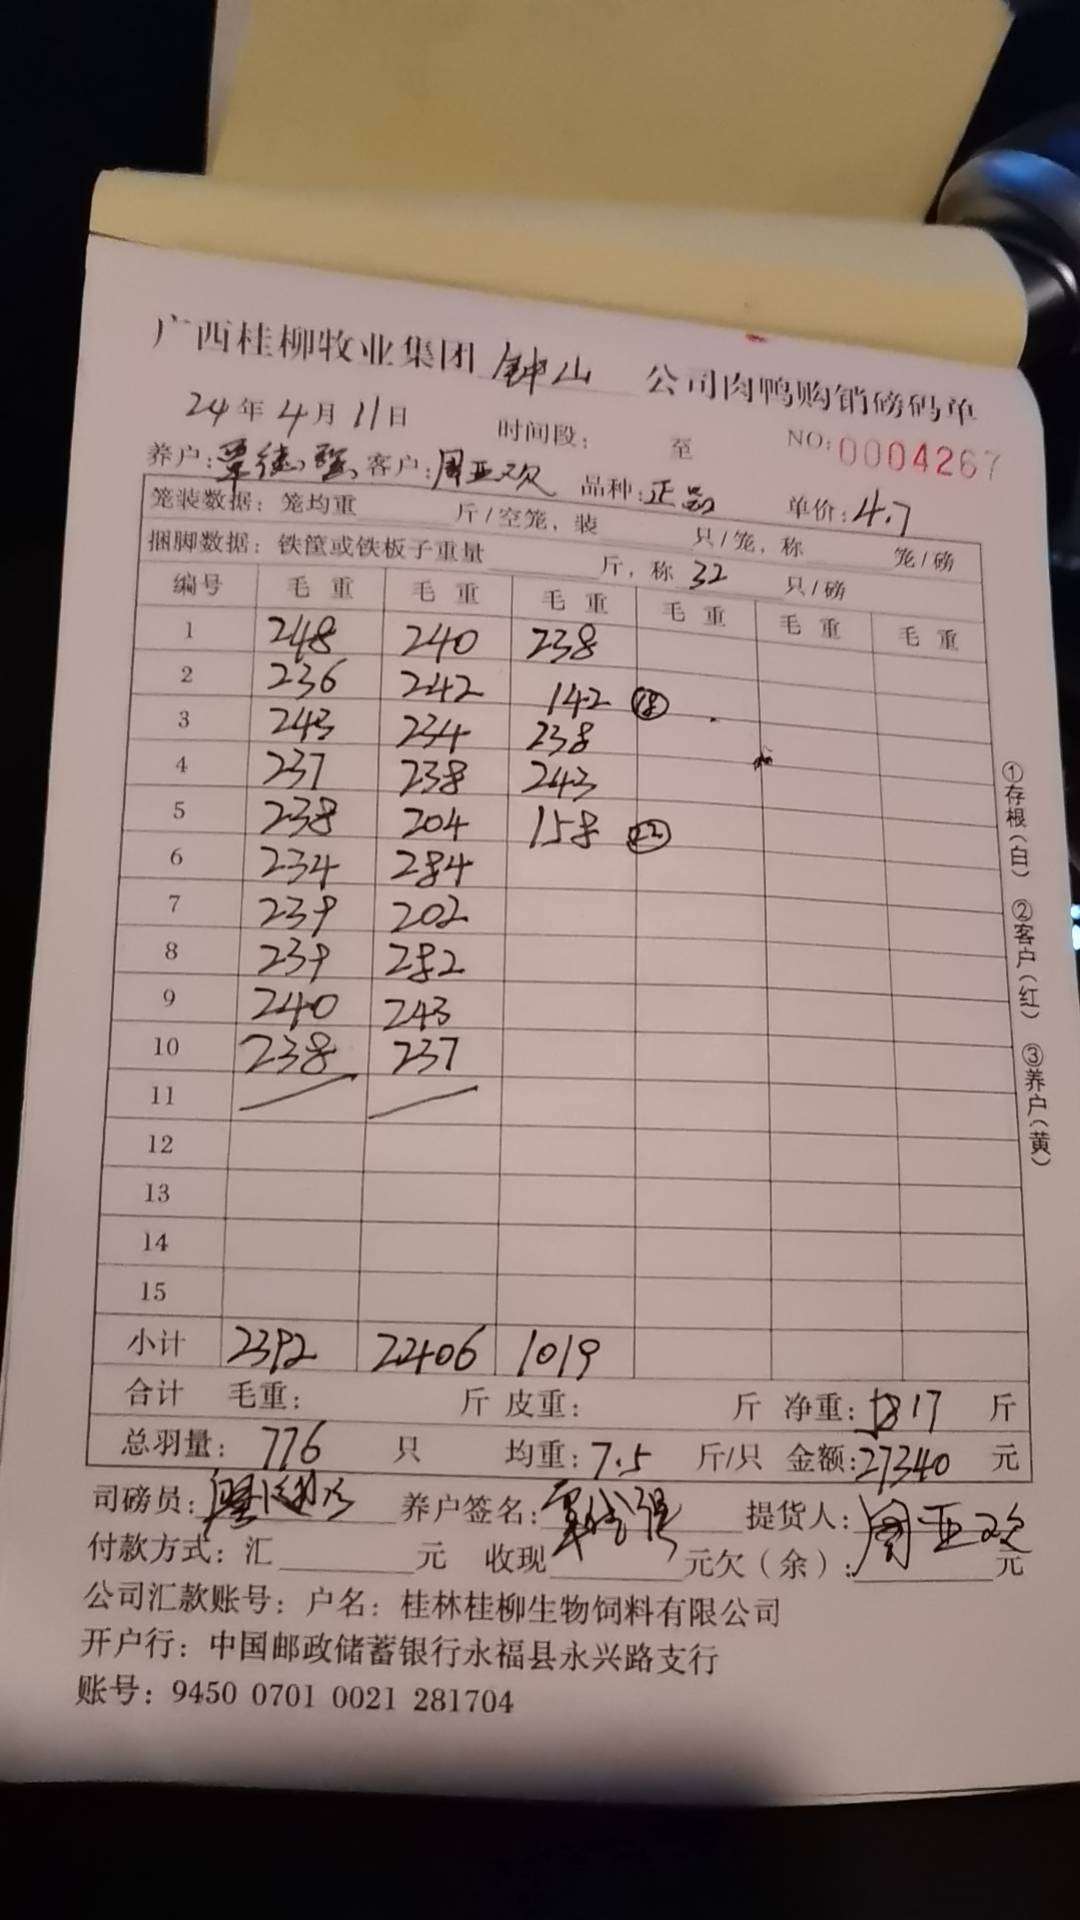 广西桂柳牧业集团 钟山 公司肉鸭购销磅码单
24年4月11日 时间段: 至 NO:0004267
养户:覃德强 客户:周亚欢 品种:正品 单价:4.7
笼装数据: 笼均重 斤/空笼, 装 只/笼, 称 笼/磅
捆脚数据: 铁筐或铁板子重量 斤, 称 32 只/磅
编号 毛重 毛重 毛重 毛重 毛重 毛重
1 248 240 238
2 236 242 142 ⑱
3 243 234 238
4 237 238 243
5 238 204 158 ㉒
6 234 284
7 239 202
8 239 282
9 240 243
10 238 237
11
12
13
14
15
小计 2392 22406 1019
合计 毛重: 斤 皮重: 斤 净重: 5817 斤
总羽量: 776 只 均重: 7.5 斤/只 金额:27340 元
司磅员: 养户签名: 覃德强 提货人: 周亚欢
付款方式: 汇 元 收现 元欠(余): 元
公司汇款账号: 户名: 桂林桂柳生物饲料有限公司
开户行: 中国邮政储蓄银行永福县永兴路支行
账号: 9450 0701 0021 281704
①存根(白) ②客户(红) ③养户(黄)